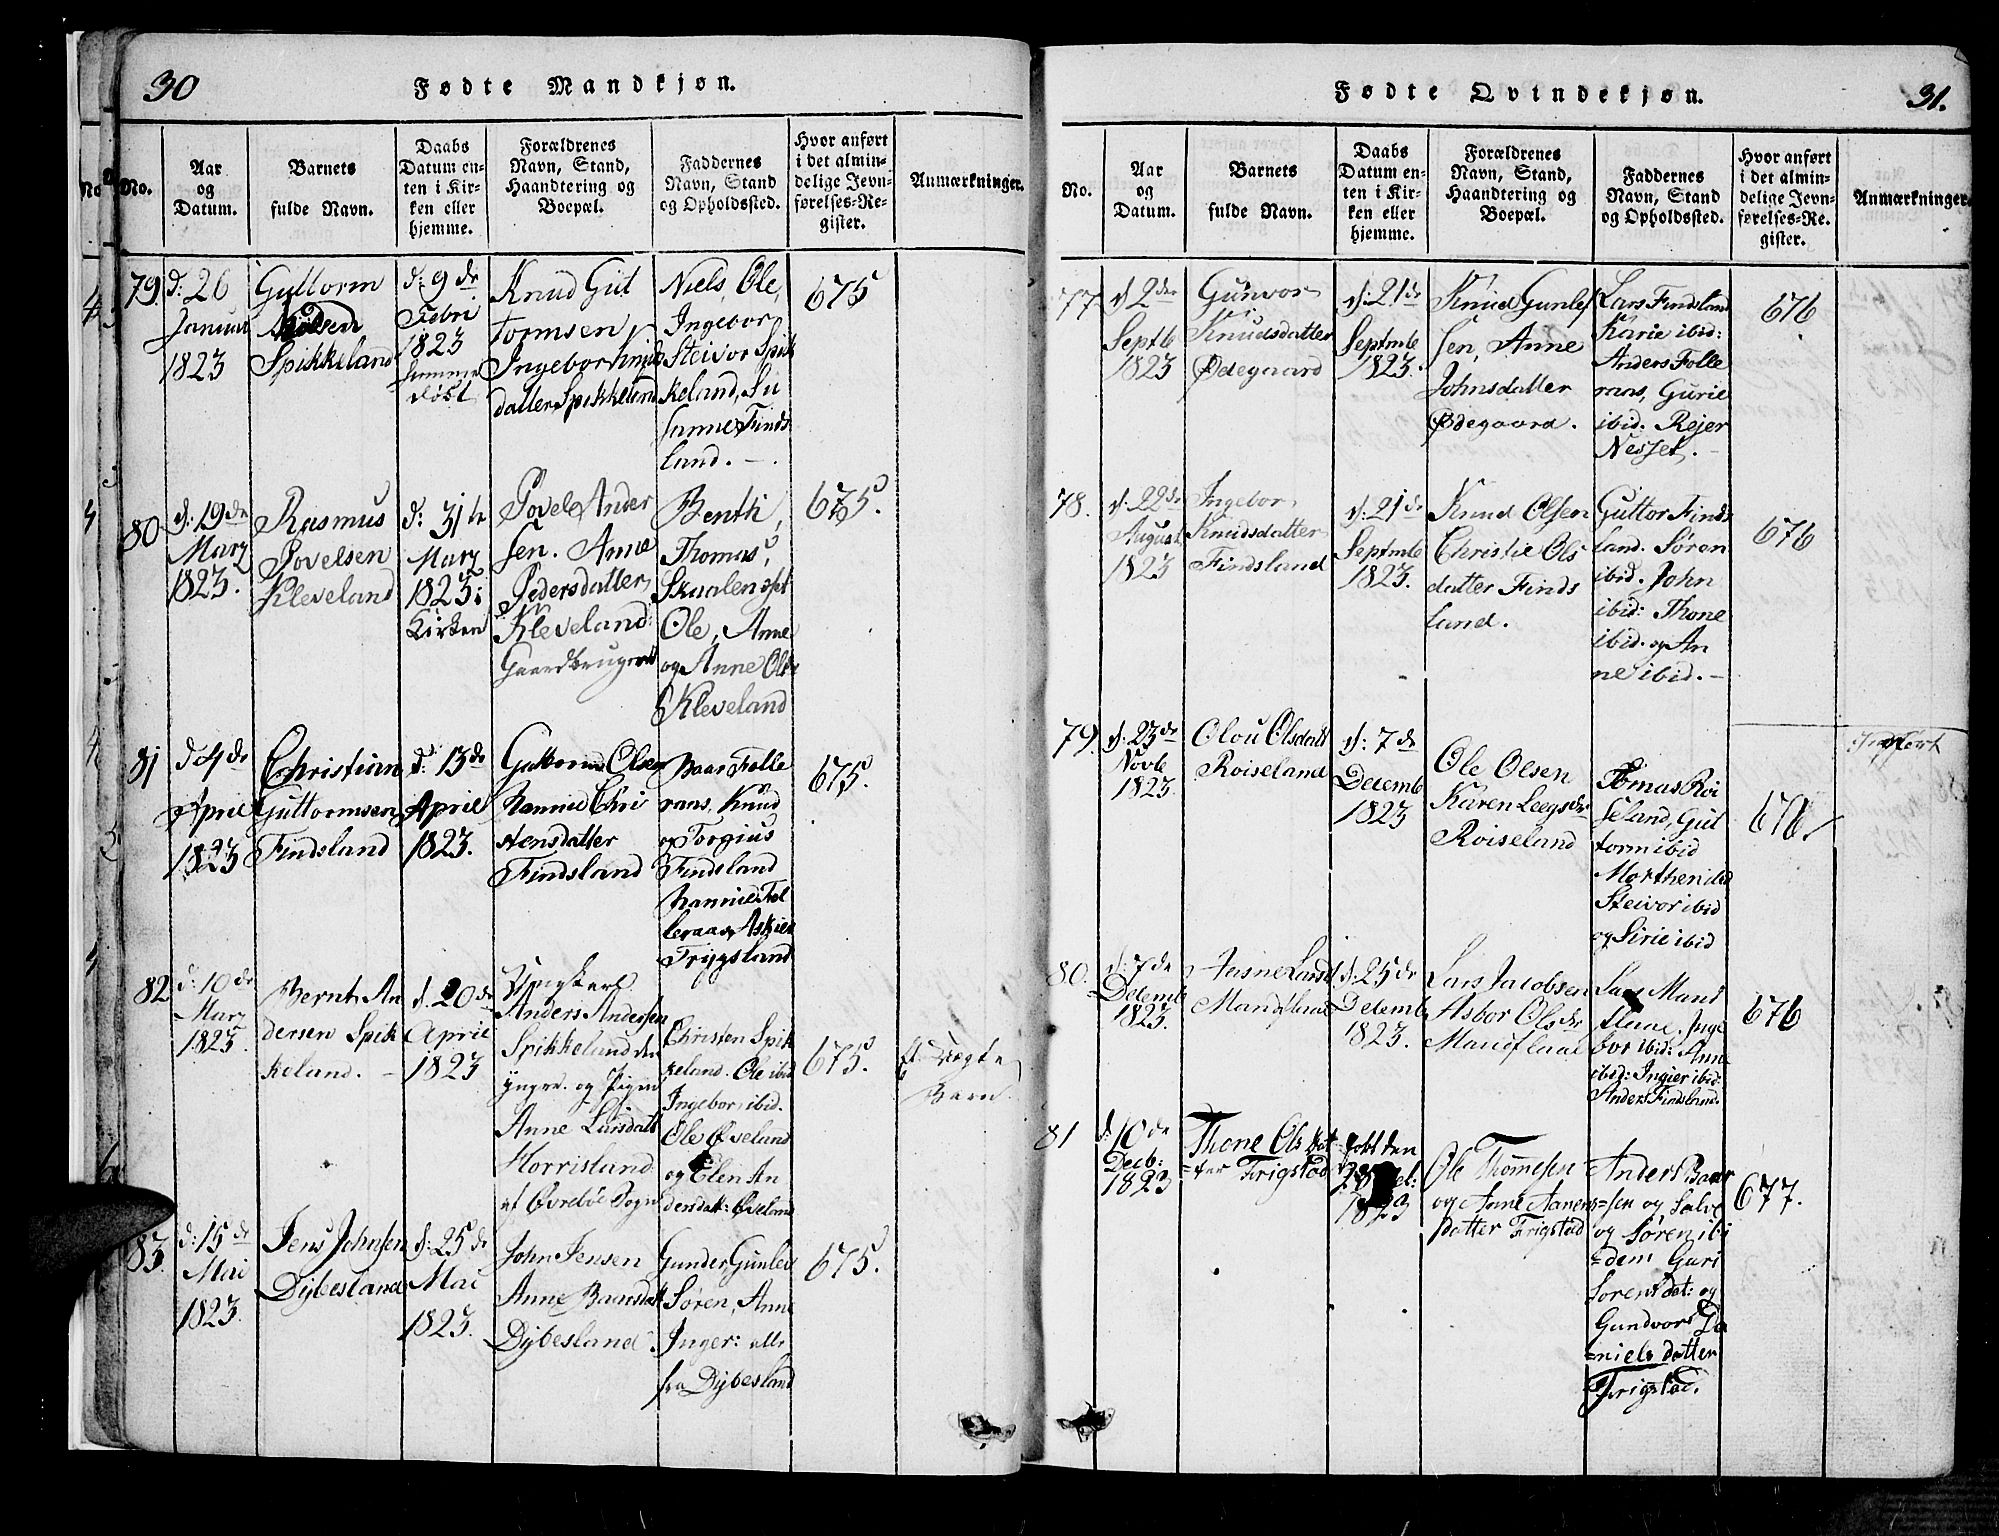 30
Fødte Mandkjøn.
No.
Aar
og
Datum.
Barnets
fulde Navn.
Daabs
Datum en-
ten i Kir-
ken eller
hjemme.
Forældrenes
Navn, Stand,
Haandtering og
Boepæl.
Faddernes
Navn, Stand
og Opholdssted.
Hvor anført
i det almin-
delige Jevn-
førelses-Re-
gister.
Anmærkninger.
79
d: 26
Januar
1823
Guttorm
Spikkeland
d: 9 de
Febri
1823
døbt
Knud Gut
tormsen
Ingebor Knuds
datter Spikkeland
Niels, Ole,
Ingebor
Steivor Spik
keland, Su
sanne Finds
land. –
675
80
d: 19 de
Marz
1823.
Rasmus
Povelsen
Kleveland
d: 31te
Marz
1823 i
Kirken
Povel Ander
sen. Anne
Pedersdatter
Kleveland
Gaardbruger
Benth,
Thomas,
Skaalensset
Ole, Anne
og Anne Ols
Kleveland
675.
81
d 4 de
April
1823
Christian
Guttormsen
Findsland
d: 13 de
April
1823.
Guttorm Olsen
Rannie Chri
stensdatter
Findsland
Baar Folle
raas, Knud
og Torgius
Findsland
Rannie Fol
leraas, Askier
Trygsland
675.
82
d: 10 de
Marz
1823.
Bernt An
dersen Spik
keland. –
d. 20 de
April
1823
Ungkarl
Anders Andersen
Spikkeland den
yngre. og Pigen
Anne Larsdatt
Horrisland
af Øvrebøe Sogn
Christen Spik
keland. Ole ibid
Ingebor ibid.
Ole Øveland
og Elen An
dersdatt: Øveland
675.
et uægte
Barn.
83.
d: 15 de
Mai
1823.
Jens Johnsen
Dybesland
d: 25 de
Mai
1823.
John Jensen
Anne Baarsdatt
Dybesland.
Gunder, Gunlev
Søren, Anne
Inger: alle
fra Dybesland
675.
Fødte Qvindekjøn.
31.
No.
Aar
og
Datum.
Barnets
fulde Navn.
Daabs
Datum en-
ten i Kir-
ken eller
hjemme.
Forældrenes
Navn, Stand,
Haandtering og
Boepæl.
Faddernes
Navn, Stand
og Opholdssted.
Hvor anført
i det almin-
delige Jevn-
førelses-Re-
gister.
Anmærkninger.
77
d 2 den
Septb
1823
Gunvor
Knudsdatter
Ødegaard
d: 21 de
Septmb
1823.
Knud Gunlef
sen, Anne
Johnsdatter
Ødegaard.
Lars Findsland
Karie ibid:
Anders Folle
raas, Gurie
ibid. Rejer
Nesset. –
676
78.
d: 22 de
August
1823
Ingebor
Knudsdatter
Findsland
d: 21 de
Septmb
1823.
Knud Olsen
Christie Ols
datter Finds
land.
Guttor Finds
land. Søren
ibid. John
ibid: Thone
ibid. og An
ne ibid. –
676
79.
d: 23 de
Novb
1823.
Olou Olsdatt
Roiseland
d: 7 de
Decemb
1823
Ole Olsen
Karen Leegsdr
Roiseland
Tomas Roi
seland, Gut
torm ibid
Morthen ibid
Steivor ibid
og Sirie ibid
676.
80.
d: 7 de
Decemb
1823.
Aasne Larsd
Mandflaae
d. 25 de
Decemb
1823.
Lars Jacobsen
Asbor Olsdr
Mandflaae
Lars Mand
flaae. Inge
bor ibid: Anne
ibid: Ingier ibid:
Anders Findsland.
676
81
d: 10 de
Decb:
1823
Thone Ols dat
=ter Frigstad
døbt den
1823
Ole Thomesen
og Anne Aanens
datter Frigstad
Anders Baar
=sen og Salve
og Søren ibi
=dem Guri
Sorens dat: og
Gundvor Da
=niels datter
Frigstad.
677.